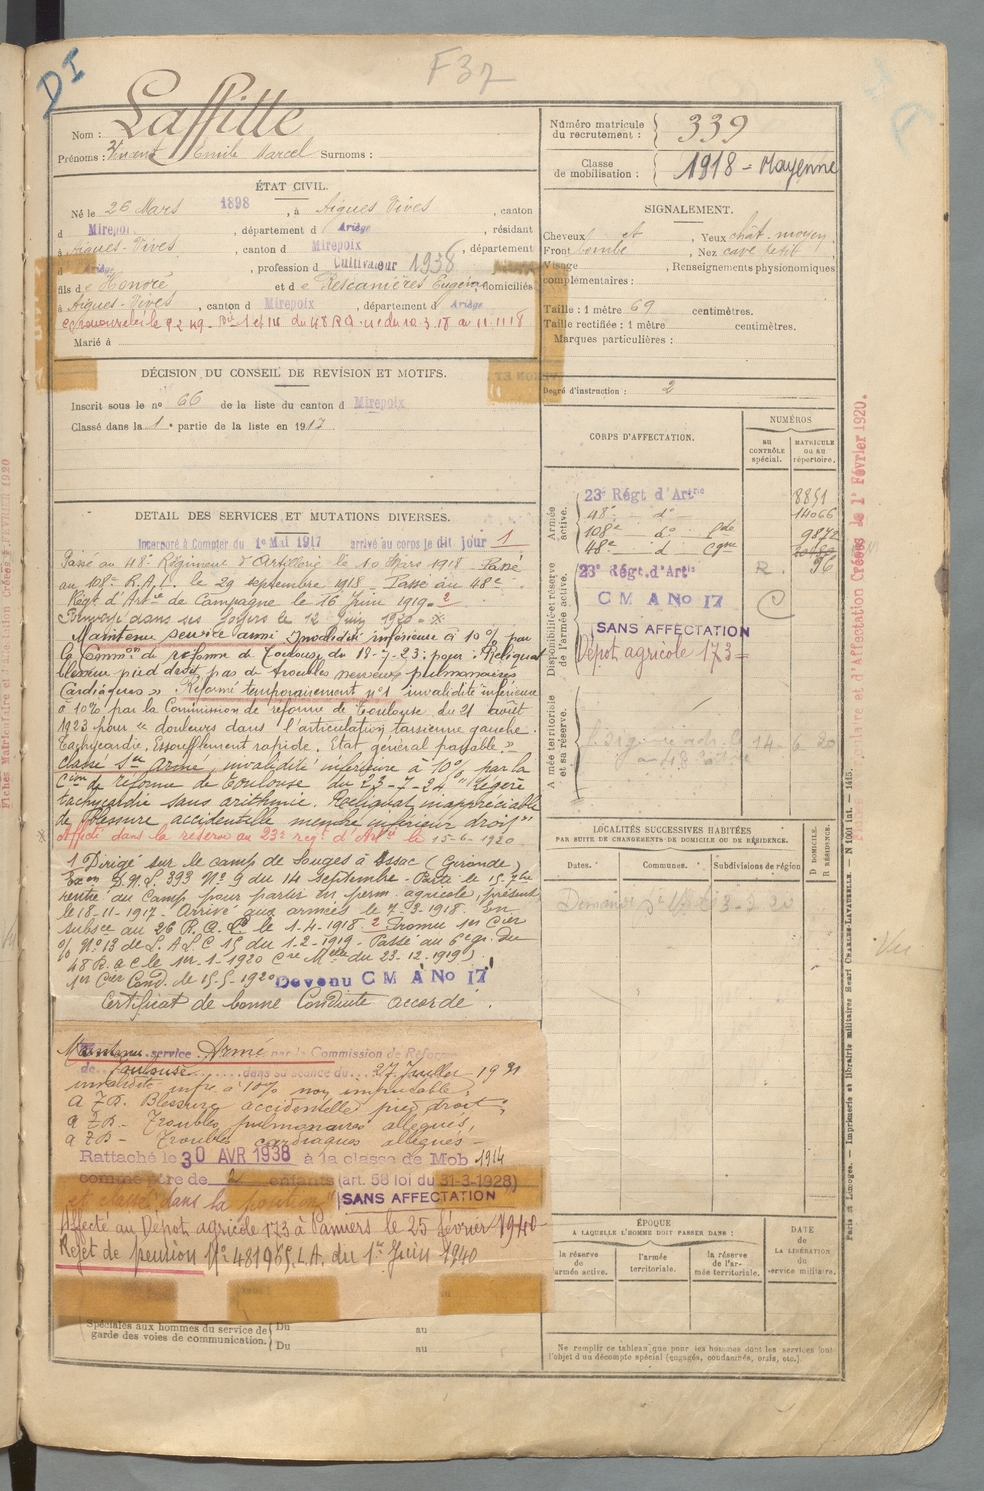 DI
F37
Nom : Laffitte
Prénoms : Vincent Emile Marcel Surnoms :
ÉTAT CIVIL.
Né le 26 Mars 1898, à Aigues Vives, canton
d Mirepoix, département d Ariège, résidant
à Aigues-Vives, canton d Mirepoix, département
d Ariège, profession d Cultivateur 1938
fils de Honoré et de Rescanières Eugénie, domiciliés
à Aigues-Vives, canton d Mirepoix, département d Ariège
Marié à
DÉCISION DU CONSEIL DE REVISION ET MOTIFS.
Inscrit sous le no 66 de la liste du canton d Mirepoix
Classé dans la 1e partie de la liste en 1917
DETAIL DES SERVICES ET MUTATIONS DIVERSES.
Incorporé à Compter du 1er Mai 1917 arrivé au corps le dit jour 1
Passé au 48e Régiment d'Artillerie le 10 Mars 1918. Passé
au 108e R.A.L. le 29 septembre 1918 Passé au 48e
Régt d'Artie de Campagne le 16 Juin 1919. 2
Renvoyé dans ses foyers le 12 Juin 1920.
Maintenu service armé Invalidité inférieure à 10% par
la Common de réforme de Toulouse du 18-7-23: pour: "Reliquat
blessure pied droit, pas de troubles nerveux pulmonaires
Cardiaques". Réformé temporairement no 1 invalidité inférieure
à 10% par la Commission de réforme de Toulouse du 21 août
1923 pour "douleurs dans l'articulation tarsienne gauche.
Tachycardie. Essoufflement rapide. Etat général passable."
Classé Sce Armé, invalidité inférieure à 10% par la
Cion de réforme de Toulouse du 23-7-24 "légère
tachycardie sans arithmie. Reliquat inappréciable
de blessure accidentelle membre inférieur droit"
Affecté dans la réserve au 23e regt d'Artie le 15-6-1920
1 Dirigé sur le camp de Souges à Issac (Gironde)
Exon D.M.S. 393 No 9 du 14 Septembre. Parti le 15 7bre
rentré du Camp pour partir en perm. agricole, présent
le 18-11-1917. Arrivé aux armées le 7-3-1918. En
subsce au 26 R.A.C le 1-4-1918. 2 Promu 1er Cier
No 13 de L.A.S.C 15 du 1-2-1919. Passé au 6e gr. du
48 R.a.c le 1er-1-1920 Cre Mlle du 23-12-1919)
1er Cier Cond. le 15-5-1920 Devenu C M A No 17
Certificat de bonne Conduite accordé.
Maintenu service Armé par la Commission de Réforme
de Toulouse dans sa séance du 27 Juillet 1931
invalidité infre à 10% non imputable;
A Z.D. Blessure accidentelle pied droit;
a Z.D - Troubles pulmonaires allégués,
a Z D - Troubles cardiaques allégués -
Rattaché le 30 AVR 1938 à la classe de Mob 1914
comme père de 2 enfants (art. 58 loi du 31-3-1928)
et classé dans la position "SANS AFFECTATION
Affecté au Dépot agricole 173 à Pamiers le 25 février 1940
Rejet de pension No 481965 L.A. du 1er Juin 1940
Spéciales aux hommes du service de garde des voies de communication. Du au
Du au
Numéro matricule du recrutement : 339
Classe de mobilisation : 1918 = Mayenne
SIGNALEMENT.
Cheveux et, Yeux chât. moyen
Front bombé, Nez cavé petit
Visage, Renseignements physionomiques
complémentaires :
Taille : 1 mètre 69 centimètres.
Taille rectifiée : 1 mètre centimètres.
Marques particulières :
Degré d'instruction : 2
CORPS D'AFFECTATION.
NUMÉROS
AU CONTRÔLE spécial.
MATRICULE ou au répertoire.
Armée active.
23e Régt d'Artie 8851
48e do 14066
108e do Lde 9872
48e d Cgne
Disponibilité et réserve de l'armée active.
23e Régt.d'Artie R. 96
C M A No 17 C
SANS AFFECTATION
Dépot agricole 173=
Armée territoriale et sa réserve.
LOCALITÉS SUCCESSIVES HABITÉES
PAR SUITE DE CHANGEMENTS DE DOMICILE OU DE RÉSIDENCE.
Dates. Communes. Subdivisions de région
D DOMICILE.
R RÉSIDENCE.
ÉPOQUE
A LAQUELLE L'HOMME DOIT PASSER DANS :
la réserve de l'armée active.
l'armée territoriale.
la réserve de l'armée territoriale.
DATE
DE
LA LIBÉRATION
du
service militaire.
Ne remplir ce tableau que pour les hommes dont les services font
l'objet d'un décompte spécial (engagés, condamnés, omis, etc.).
Paris et Limoges. — Imprimerie et librairie militaires Henri CHARLES-LAVAUZELLE. — N° 1001 int. — 1415.